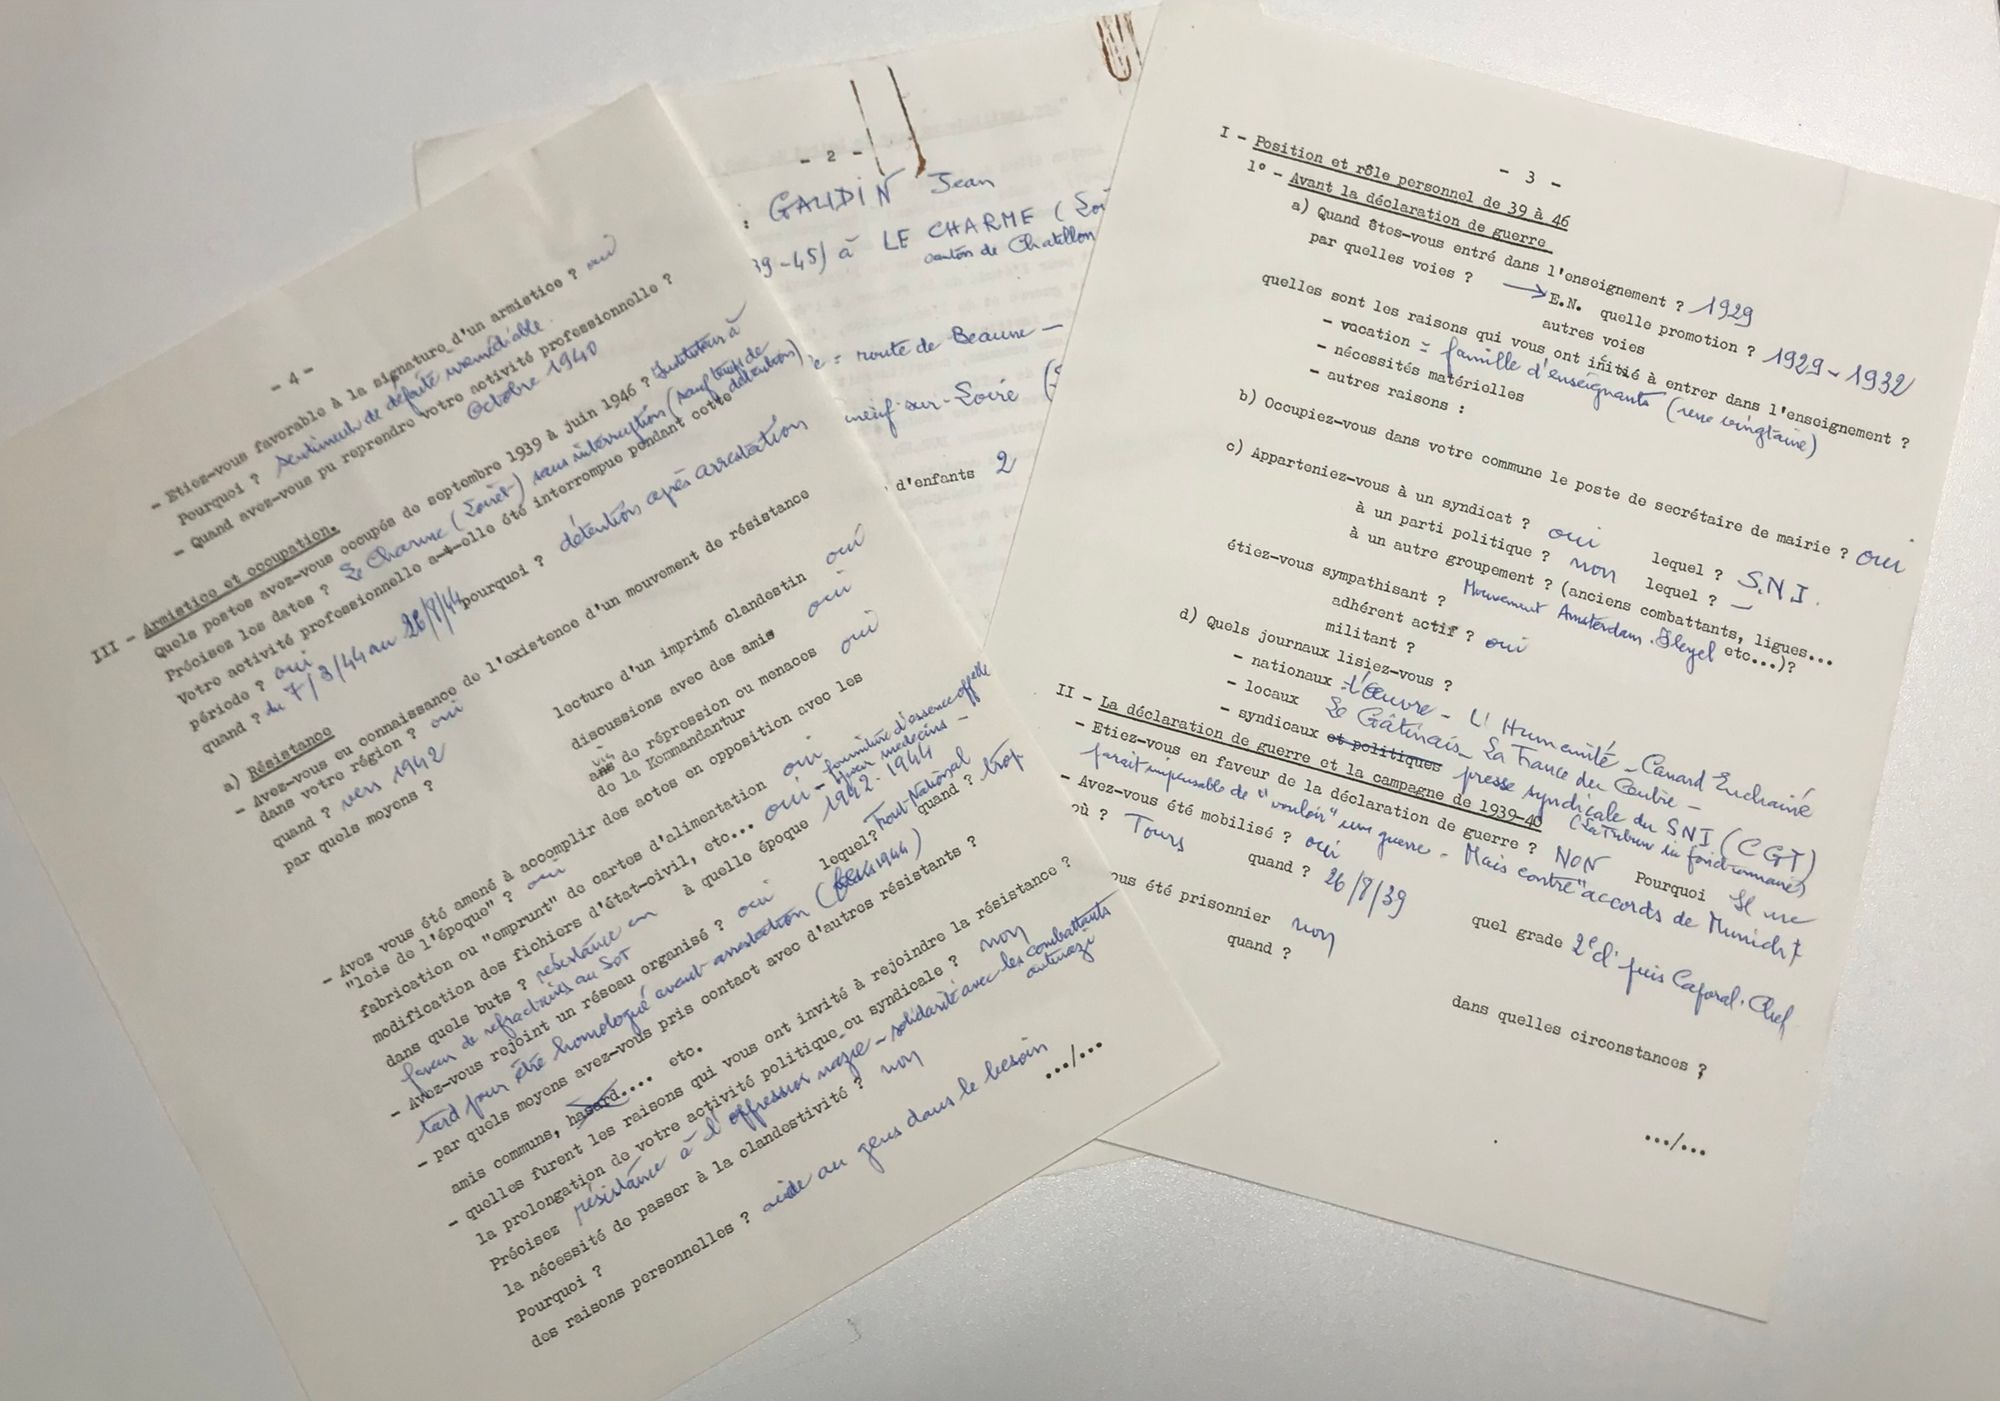 - 4 -
- Etiez-vous favorable à la signature d'un armistice ? oui
Pourquoi ? sentiment de défaite irrémédiable.
- Quand avez-vous pu reprendre votre activité professionnelle ?
Octobre 1940
III - Armistice et occupation.
Quels postes avez-vous occupés de septembre 1939 à juin 1946 ? Instituteur à
Précisez les dates ? Le Charme (Loiret) sans interruption (sauf temps de détention)
Votre activité professionnelle a-t-elle été interrompue pendant cette
période ? oui
quand ? du 7/3/44 au 26/8/44 pourquoi ? détention après arrestation
a) Résistance
- Avez-vous eu connaissance de l'existence d'un mouvement de résistance
dans votre région ? oui
quand ? vers 1942
par quels moyens ?
lecture d'un imprimé clandestin oui
discussions avec des amis oui
avis de répression ou menaces oui
de la Kommandantur
- Avez vous été amené à accomplir des actes en opposition avec les
"lois de l'époque" ? oui
fabrication ou "emprunt" de cartes d'alimentation oui
modification des fichiers d'état-civil, etc... oui - fourniture d'essence
pour médecins -
dans quels buts ? résistance en à quelle époque 1942-1944
faveur de réfractaires au STO
- Avez-vous rejoint un réseau organisé ? oui lequel? Front National quand ? trop
tard pour être homologué avant arrestation
- par quels moyens avez-vous pris contact avec d'autres résistants ?
amis communs, hasard.... etc.
- quelles furent les raisons qui vous ont invité à rejoindre la résistance ?
la prolongation de votre activité politique ou syndicale ? non
Précisez résistance à l'oppression nazie - solidarité avec les combattants
antinazi
la nécessité de passer à la clandestivité ? non
Pourquoi ?
des raisons personnelles ? aide au gens dans le besoin
.../...
- 2 -
: GAUDIN Jean
39-45) à LE CHARME (Loi
canton de Chatillon
= route de Beaune -
neuf-sur-Loire (
d'enfants 2
- 3 -
I - Position et rôle personnel de 39 à 46
1° - Avant la déclaration de guerre
a) Quand êtes-vous entré dans l'enseignement ? 1929
par quelles voies ? → E.N. quelle promotion ? 1929-1932
autres voies
quelles sont les raisons qui vous ont initié à entrer dans l'enseignement ?
- vocation = famille d'enseignants (une vingtaine)
- nécessités matérielles
- autres raisons :
b) Occupiez-vous dans votre commune le poste de secrétaire de mairie ? oui
c) Apparteniez-vous à un syndicat ? oui lequel ? S.N.I.
à un parti politique ? non lequel ? -
à un autre groupement ? (anciens combattants, ligues... etc...)?
Mouvement Amsterdam-Pleyel
étiez-vous sympathisant ?
adhérent actif ? oui
militant ?
d) Quels journaux lisiez-vous ?
- nationaux = L'Œuvre - L'Humanité - Canard Enchaîné
- locaux Le Gâtinais - La France du Centre -
- syndicaux et politiques presse syndicale du SNI (CGT)
II - La déclaration de guerre et la campagne de 1939-40
- Etiez-vous en faveur de la déclaration de guerre ? NON Pourquoi Il me
parait impensable de "vouloir" une guerre - Mais contre "accords de Munich"
- Avez-vous été mobilisé ? oui
où ? Tours quand ? 26/8/39 quel grade 2e cl puis Caporal-Chef
ous été prisonnier non
quand ?
dans quelles circonstances ?
.../...